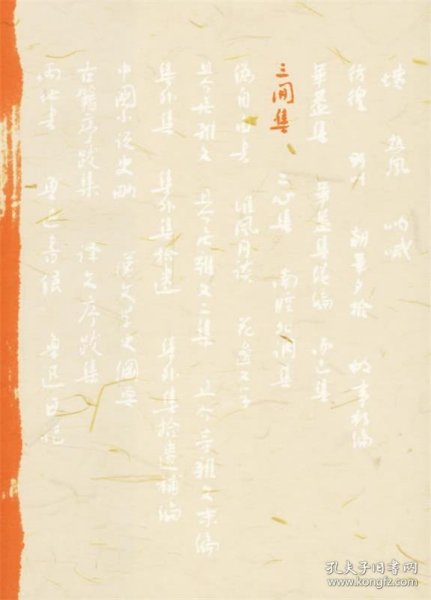 坟 热风 呐喊
彷徨 野草 朝华夕拾 故事新编
华盖集 华盖集续编 而已集
三闲集
三心集 南腔北调集
伪自由书 准风月谈 花边文学
且介亭杂文 且介亭杂文二集 且介亭杂文末编
集外集 集外集拾遗 集外集拾遗补编
中国小说史略 汉文学史纲要
古籍序跋集 译文序跋集
两地书 鲁迅书信 鲁迅日记
孔夫子旧书网
www.kongfz.com